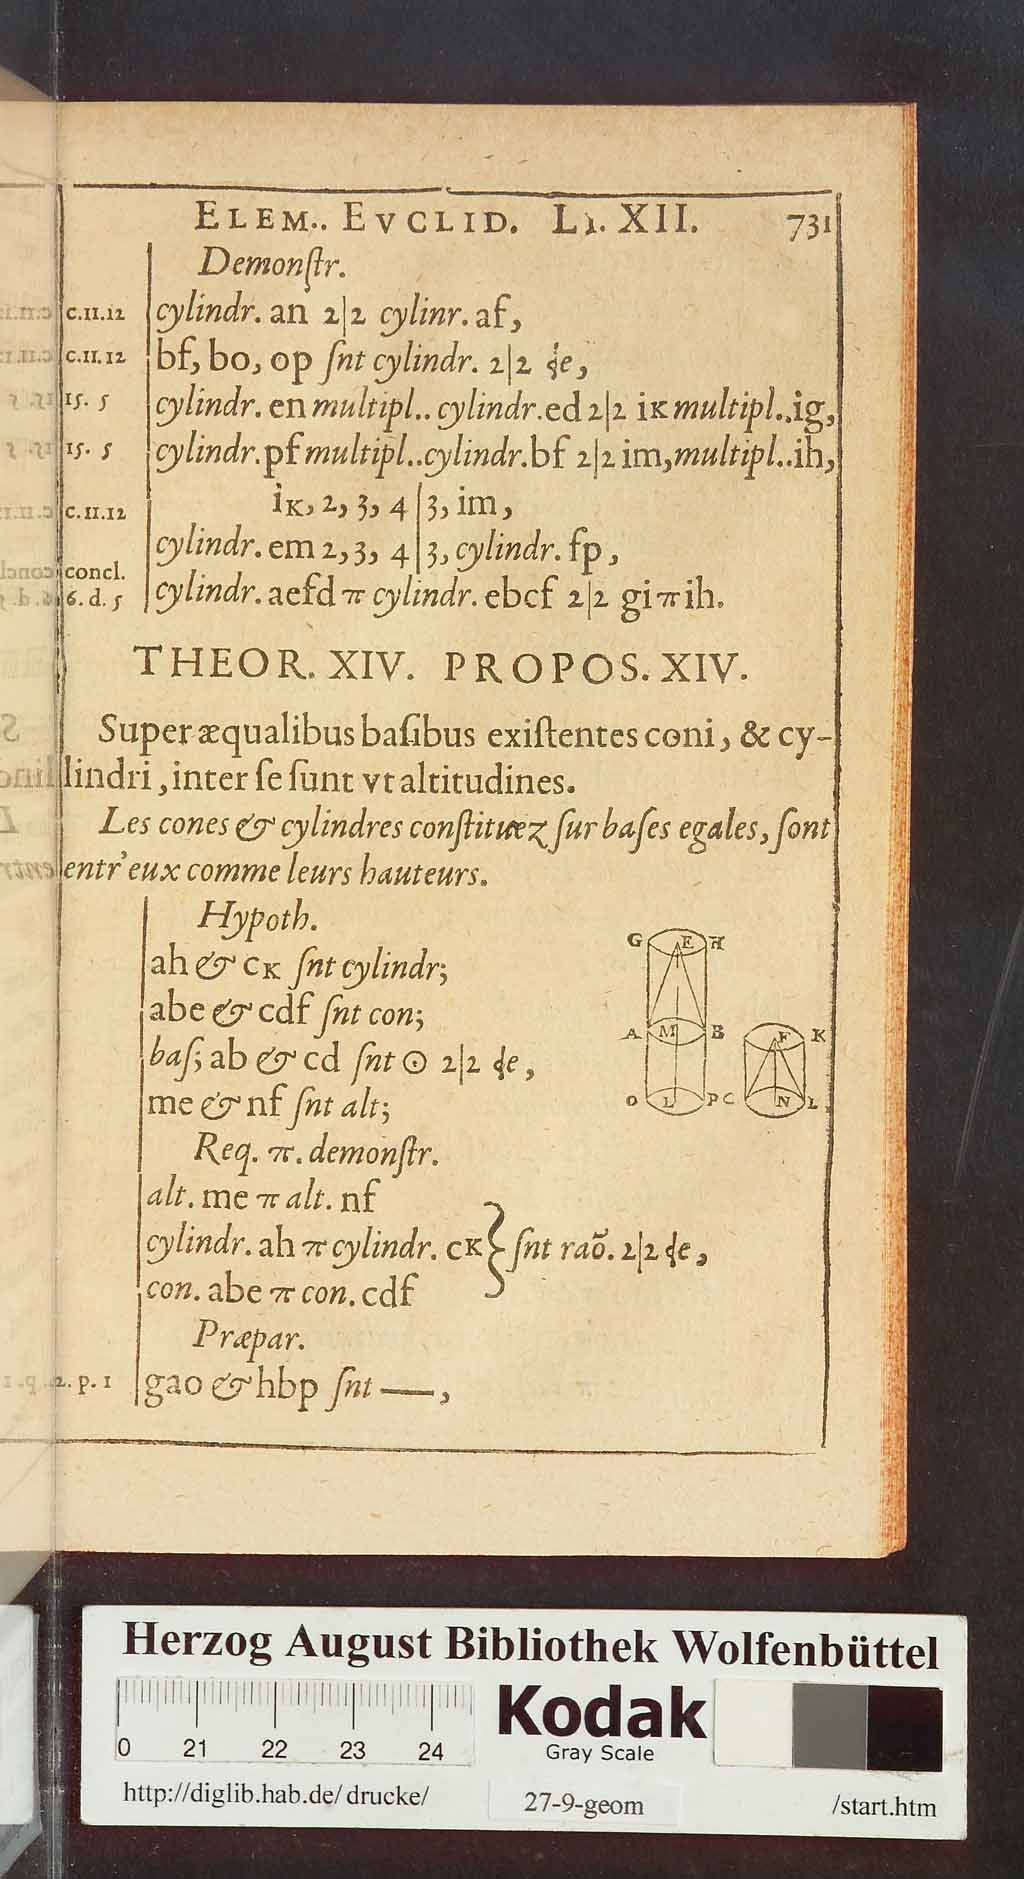 ELEM.. EVCLID. LI. XII. 731
Demonſtr.
c.11.12 cylindr. an 2|2 cylinr. af,
c.11.12 bf, bo, op ſnt cylindr. 2|2 ɖe,
15. 5 cylindr. en multipl.. cylindr. ed 2|2 iK multipl.. ig,
15. 5 cylindr. pf multipl.. cylindr. bf 2|2 im, multipl.. ih,
iK, 2, 3, 4|3, im,
c.11.12
cylindr. em 2, 3, 4|3, cylindr. fp,
concl.
6. d. 5 cylindr. aefd π cylindr. ebcf 2|2 gi π ih.
THEOR. XIV. PROPOS. XIV.
Super æqualibus baſibus exiſtentes coni, & cy-
lindri, inter ſe ſunt vt altitudines.
Les cones & cylindres conſtituez ſur baſes egales, ſont
entr'eux comme leurs hauteurs.
Hypoth.
ah & cK ſnt cylindr;
abe & cdf ſnt con;
baſ; ab & cd ſnt ⊙ 2|2 ɖe,
me & nf ſnt alt;
Req. π. demonſtr.
alt. me π alt. nf
cylindr. ah π cylindr. cK } ſnt raõ. 2|2 ɖe,
con. abe π con. cdf
Præpar.
2. p. 1 gao & hbp ſnt —,
G E H
A M B F K
O L P C N L
Herzog August Bibliothek Wolfenbüttel
0 21 22 23 24
Kodak
Gray Scale
http://diglib.hab.de/drucke/ 27-9-geom /start.htm